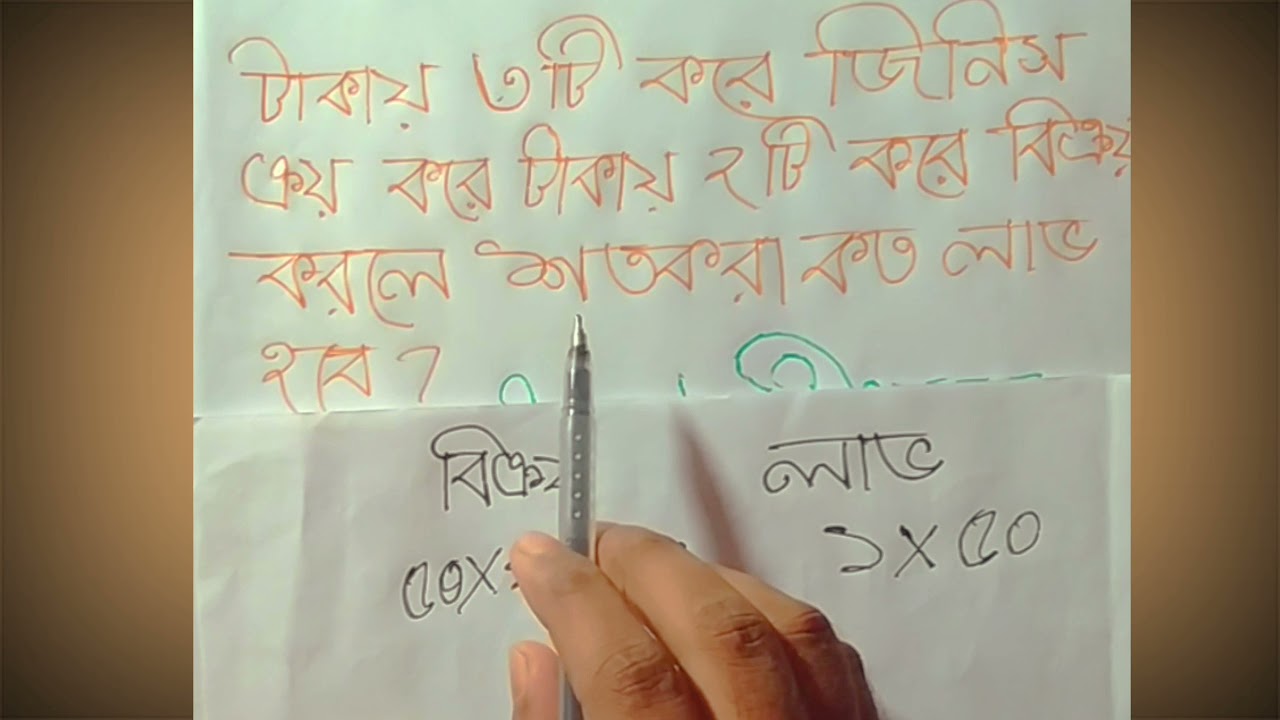 টাকায় ৩টি করে জিনিস
ক্রয় করে টাকায় ২টি করে বিক্রয়
করলে শতকরা কত লাভ
হবে ?
লাভ
১ X ৫০